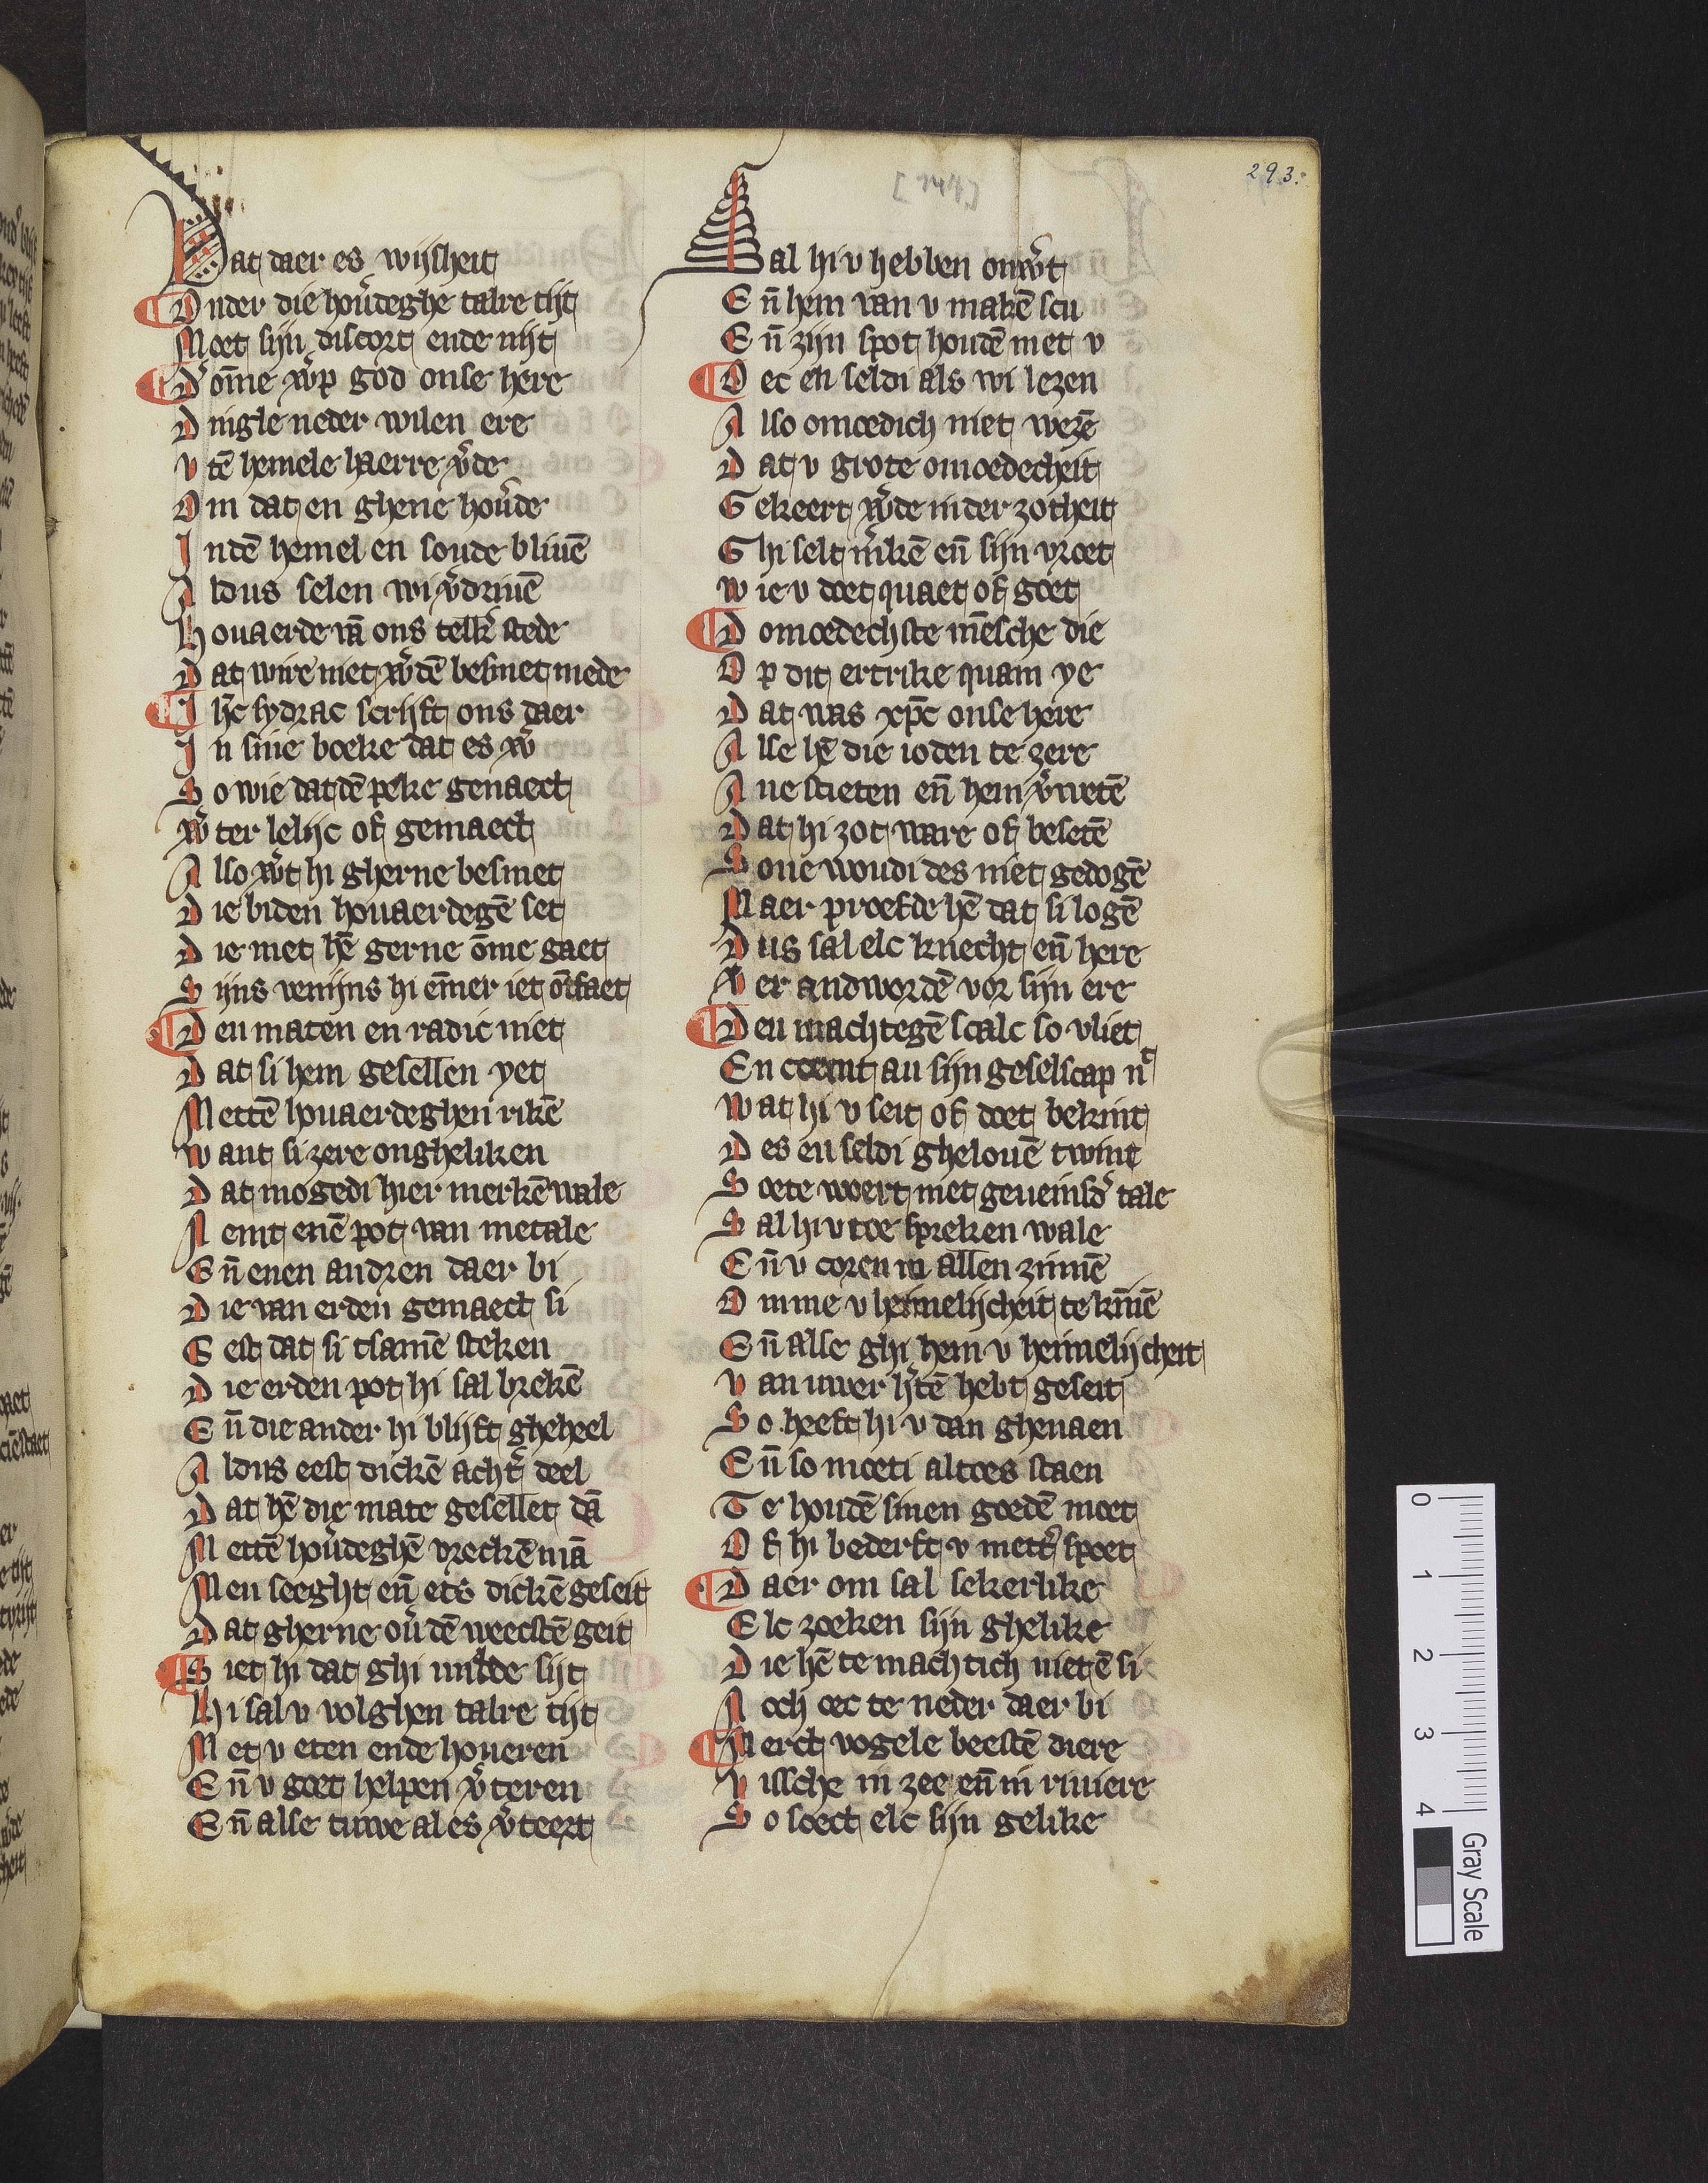 293.
Dat daer es wijsheit
Onder die hou̾deghe talre tijt
Moet sijn discort ende nijt
D̾ om̄me w̾p god onse here
Dingle neder wilen ere
Vtē hemele haerre v̾de
Om dat en ghene hou̾de
Indē hemel en soude bliuē
Aldus selen wi v̾driuē
Houaerde vā ons telk̾ stede
Dat wire niet w̾dē besmet mede
Ih̄c sydrac scrijft ons daer
In sine boeke dat es w̾
So wie dat dē peke genaect
W̾t er lelijc of gemaect
Also w̾t hi gherne besmet
Die biden houaerdegē set
Die met hē gerne ōme gaet
Sijns venijns hi ēmer iet ōtfaet
Den maten en radic niet
Dat si hem gesellen yet
Mettē houaerdeghen rikē
Want si zere ongheliken
Dat mogedi hier merkē wale
Nemt enē pot van metale
Eñ enen andren daer bi
Die van erden gemaect si
Eest dat si tsamē steken
Die erden pot hi sal brekē
Eñ die ander hi blijft gheheel
Aldus eest dickē acht̾ deel
Dat hē die mate gesellet dā
Mettē hou̾deghē vreckē mā
Men seeght eñ ets dickē geseit
Dat gherne ou̾ dē weecstē geit
Siet hi dat ghi milde sijt
Hi sal v volghen talre tijt
Met v eten ende houeren
Eñ v goet helpen v̾teren
Eñ alse tuwe al es v̾teert
Sal hi v hebben onw̾t
Eñ hem van v makē scu
Eñ zijn spot houdē met v
Oec en seldi als wi lezen
Also omoedich niet wezē
Dat v grote omoedecheit
Gekeert w̾de in der zotheit
Ghi selt m̾kē eñ sijn vroet
Wie v doet quaet of goet
Domoedechste mēsche die
Op dit ertrike quam ye
Dat was xp̄c onse here
Alse hē die ioden te zere
Ane stieten eñ hem v̾wetē
Dat hi zot ware of besetē
Sone woudi des niet gedogē
Maer proefde hē dat si logē
Dus sal elc knecht eñ here
Ver andwordē vor sijn ere
Den machtegē scalc so vliet
En coemt an sijn geselscap nt
Wat hi v seit of doet bekint
Des en seldi ghelouē twint
Soete woert met geueinsd̾ tale
Sal hi v toe spreken wale
Eñ v coren in allen zinnē
Omme v heimelijcheit te kinnē
Eñ alse ghi hem v heimelijcheit
Van uwer h̾tē hebt geseit
So heeft hi v dan ghevaen
Eñ so moeti altoes staen
Te houdē sinen goedē moet
Of hi bederft v met̾ spoet
Daer om sal sekerlike
Elc zoeken sijn ghelike
Die hē te machtich niet ē si
Noch oec te neder daer bi
Merct vogele beestē diere
Vissche in zee eñ in riuiere
So soect elc sijn gelike
0
1
2
3
4
Gray Scale